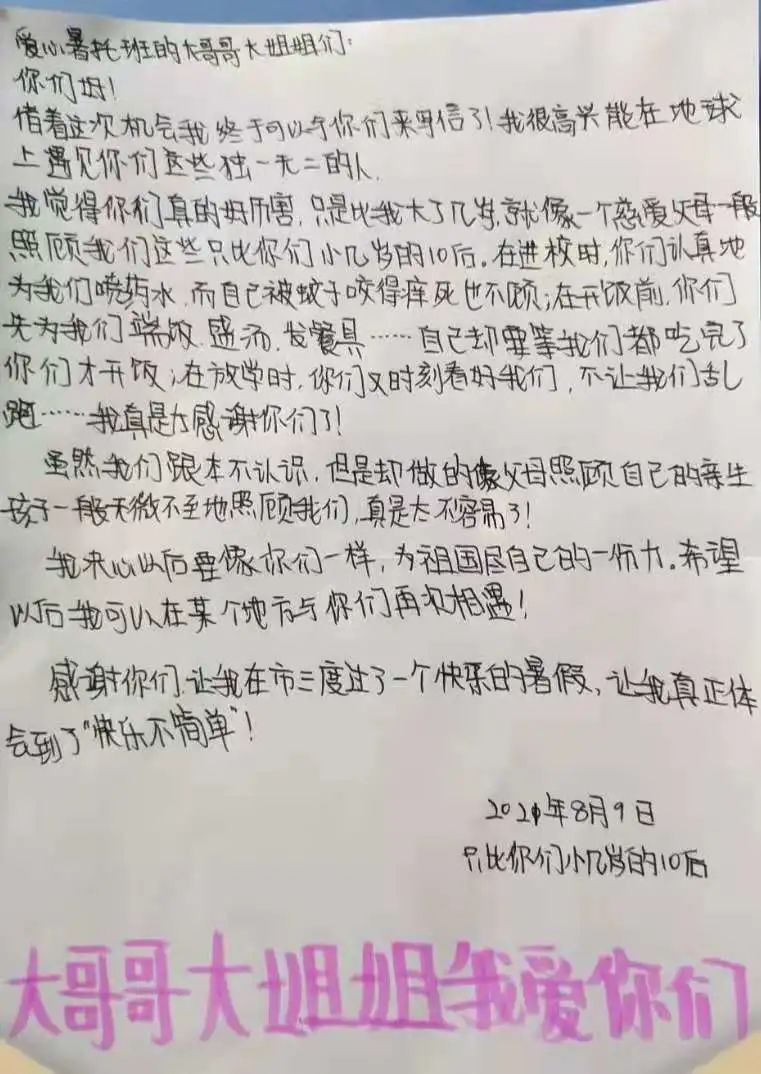 爱心暑托班的大哥哥大姐姐们:
你们好!
借着这次机会我终于可以与你们来写信了!我很高兴能在地球
上遇见你们这些独一无二的人.
我觉得你们真的好厉害,只是比我大了几岁,就像一个慈爱父母一般
照顾我们这些只比你们小几岁的10后。在进校时,你们认真地
为我们喷药水,而自己被蚊子咬得痒死也不顾;在开饭前,你们
先为我们端饭、盛汤、发餐具……自己却要等我们都吃完了
你们才开饭;在放学时,你们又时刻看好我们,不让我们乱
跑……我真是太感谢你们了!
虽然我们跟本不认识,但是却做的像父母照顾自己的亲生
孩子一般无微不至地照顾我们,真是太不容易了!
我决心以后要像你们一样,为祖国尽自己的一份力。希望
以后我可以在某个地方与你们再次相遇!
感谢你们,让我在市三度过了一个快乐的暑假,让我真正体
会到了“快乐不简单”!
2021年8月9日
只比你们小几岁的10后
大哥哥大姐姐我爱你们